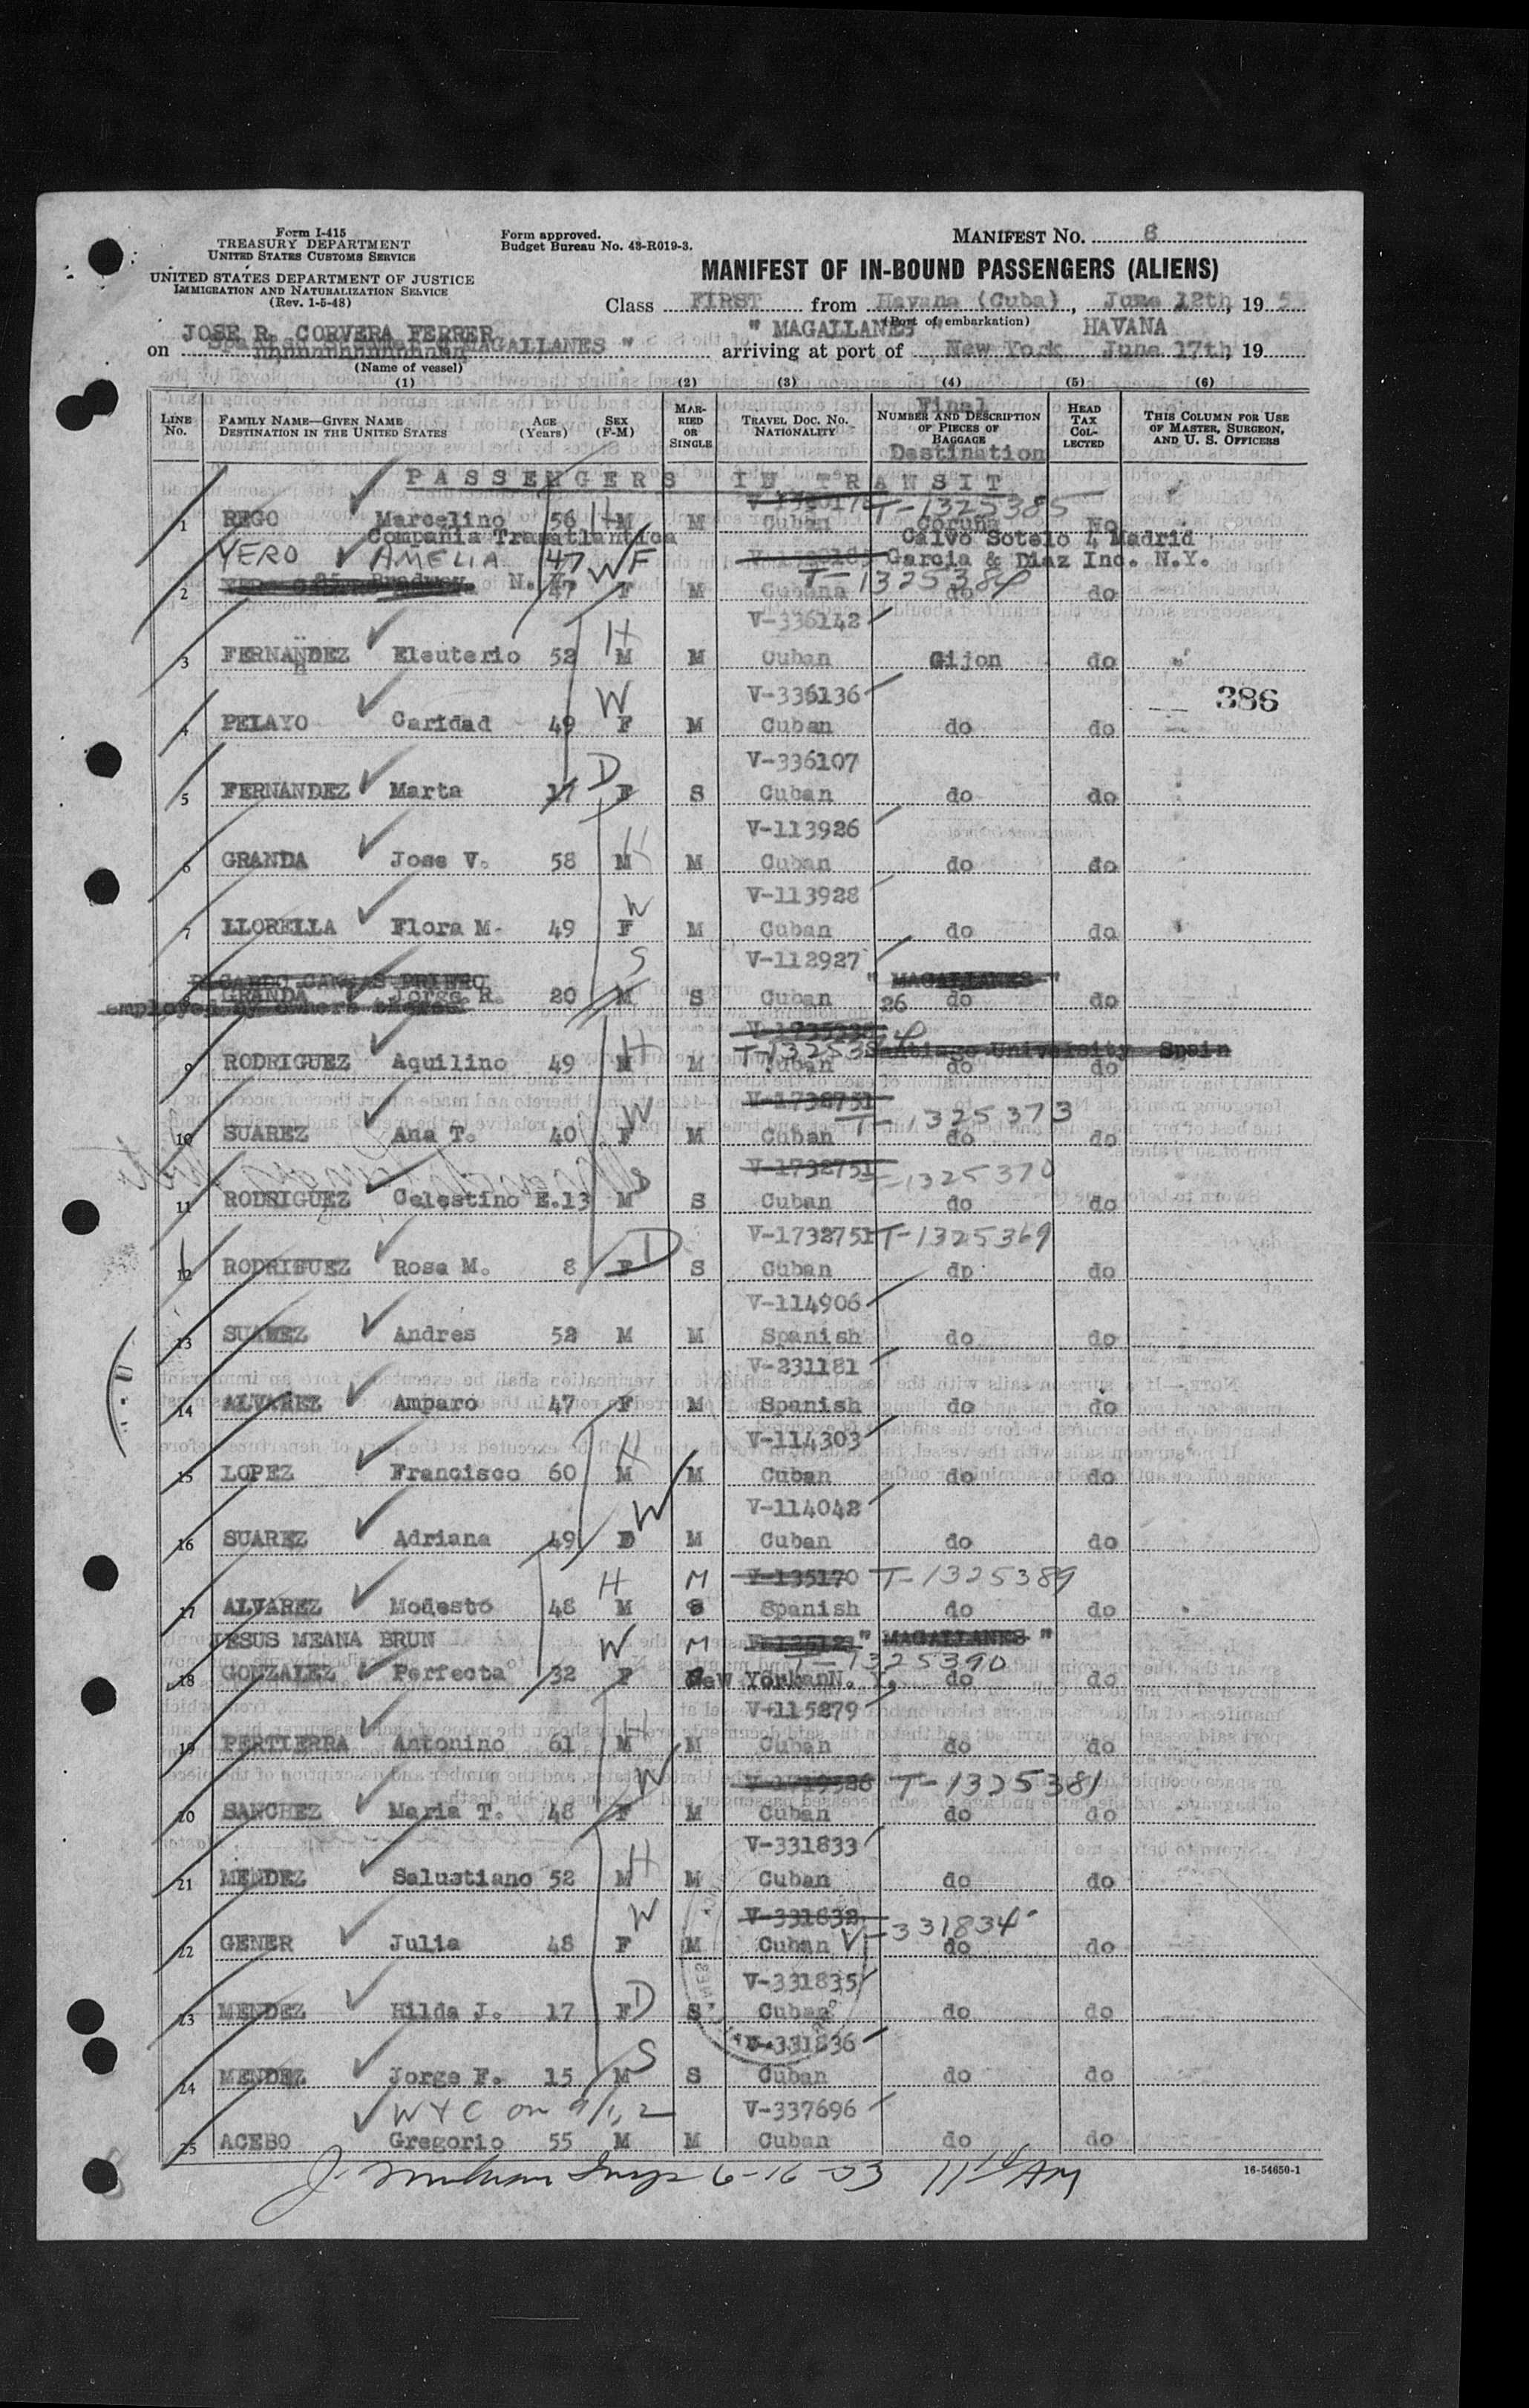 Form I-415
TREASURY DEPARTMENT
UNITED STATES CUSTOMS SERVICE
UNITED STATES DEPARTMENT OF JUSTICE
IMMIGRATION AND NATURALIZATION SERVICE
(Rev. 1-5-48)
Form approved.
Budget Bureau No. 43-R019-3.
MANIFEST No. 6
MANIFEST OF IN-BOUND PASSENGERS (ALIENS)
Class FIRST from Havana (Cuba), June 12th, 19 53
(Port of embarkation)
JOSE R. CORVERA FERRER " MAGALLANES " HAVANA
on MAGALLANES " arriving at port of New York June 17th, 19
(Name of vessel)
(1) (2) (3) (4) (5) (6)
LINE No. FAMILY NAME—GIVEN NAME DESTINATION IN THE UNITED STATES AGE (Years) SEX (F-M) MARRIED OR SINGLE TRAVEL DOC. No. NATIONALITY NUMBER AND DESCRIPTION OF PIECES OF BAGGAGE HEAD TAX COLLECTED THIS COLUMN FOR USE OF MASTER, SURGEON, AND U. S. OFFICERS
Final Destination
PASSENGERS IN TRANSIT
T-1325385
1 REGO Marcelino 56 H M M Cuban Coruña No
Compañia Trasatlantica Calvo Sotelo 4 Madrid
YERO AMELIA 47 W F Garcia & Diaz Inc. N.Y.
T-1325384
2 N. Y. 47 F M Cubana do do
V-336142
3 FERNANDEZ Eleuterio 52 H M M Cuban Gijon do "
V-336136
4 PELAYO Caridad 49 W F M Cuban do do
386
V-336107
5 FERNANDEZ Marta 17 D F S Cuban do do
V-113926
6 GRANDA Jose V. 58 H M M Cuban do do
V-113928
7 LLORELLA Flora M. 49 W F M Cuban do do
V-112927
RICARDO CANGAS PRIETO " MAGALLANES "
8 GRANDA Jorge R. 20 S M S Cuban 26 do do
employed by owners thereof
Santiago University Spain
9 RODRIGUEZ Aquilino 49 H M M Cuban do do
V-1738751 T-1325373
10 SUAREZ Ana T. 40 W F M Cuban do do
V-1732751 T-1325370
11 RODRIGUEZ Celestino E. 13 S M S Cuban do do
V-1732751 T-1325369
12 RODRIGUEZ Rosa M. 8 D F S Cuban dp do
V-114906
13 SUAREZ Andres 52 M M Spanish do do
V-231181
14 ALVAREZ Amparo 47 F M Spanish do do
V-114303
15 LOPEZ Francisco 60 H M M Cuban do do
V-114042
16 SUAREZ Adriana 49 W D M Cuban do do
V-135170 T-1325389
17 ALVAREZ Modesto 48 H M M S Spanish do do
JESUS MEANA BRUN " MAGALLANES "
T-1325390
18 GONZALEZ Perfecta 32 W F M New York N. Y. do do
V-115279
19 PERTIERRA Antonino 61 H M M Cuban do do
T-1325381
20 SANCHEZ Maria T. 48 W F M Cuban do do
V-331833
21 MENDEZ Salustiano 52 H M M Cuban do do
V-331832 V-331834
22 GENER Julia 48 W F M Cuban do do
V-331835
23 MENDEZ Hilda J. 17 F D S Cuban do do
V-331836
24 MENDEZ Jorge F. 15 M S S Cuban do do
W + C on 9/1,2 V-337696
25 ACEBO Gregorio 55 M M Cuban do do
6-16-53 11 10 AM
16-54650-1